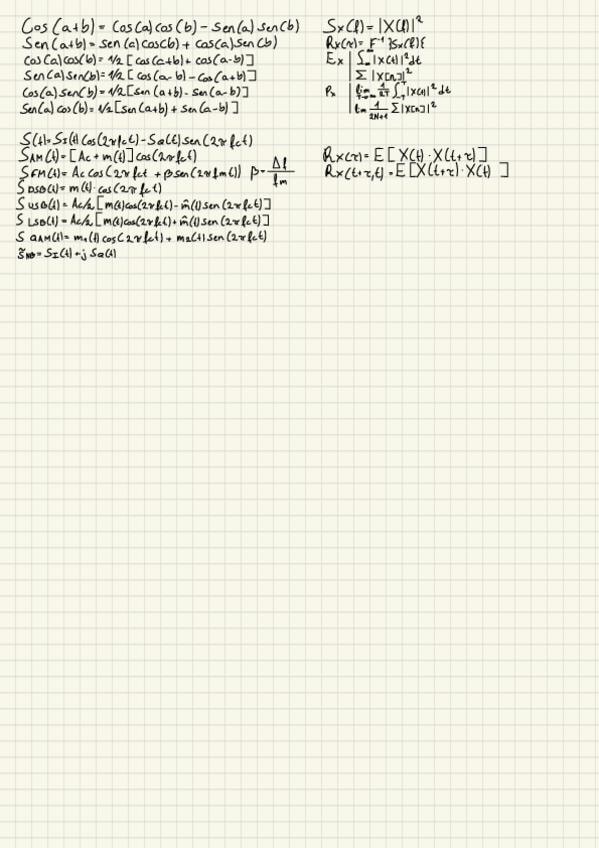 Cos(a+b) = Cos(a)cos(b) - Sen(a) sen(b)
Sen(a+b) = sen(a)cos(b) + cos(a)sen(b)
Cos(a)cos(b) = 1/2 [cos(a+b) + cos(a-b)]
Sen(a)sen(b) = 1/2 [cos(a-b) - cos(a+b)]
Cos(a)sen(b) = 1/2 [sen(a+b) - sen(a-b)]
Sen(a)cos(b) = 1/2 [sen(a+b) + sen(a-b)]
Sx(f) = |X(f)|²
Rx(τ) = F⁻¹ {Sx(f)}
Ex | ∫∞ |x(t)|² dt
∑ |x[n]|²
Px | lim T→∞ 1/2T ∫ᵀ₋T |x(t)|² dt
lim 1/2N+1 ∑|x[n]|²
S(t) = SI(t) cos(2πfct) - SQ(t) sen(2πfct)
SAM(t) = [Ac + m(t)] cos(2πfct)
SFM(t) = Ac cos(2πfct + βsen(2πfmt)) β = Δf/fm
SDSB(t) = m(t)·cos(2πfct)
SUSB(t) = Ac/2 [m(t)cos(2πfct) - m̂(t)sen(2πfct)]
SLSB(t) = Ac/2 [m(t)cos(2πfct) + m̂(t)sen(2πfct)]
SQAM(t) = m1(t) cos(2πfct) + m2(t) sen(2πfct)
s̃NB = SI(t) + j SQ(t)
Rx(τ) = E[X(t)·X(t+τ)]
Rx(t+τ,t) = E[X(t+τ)·X(t)]